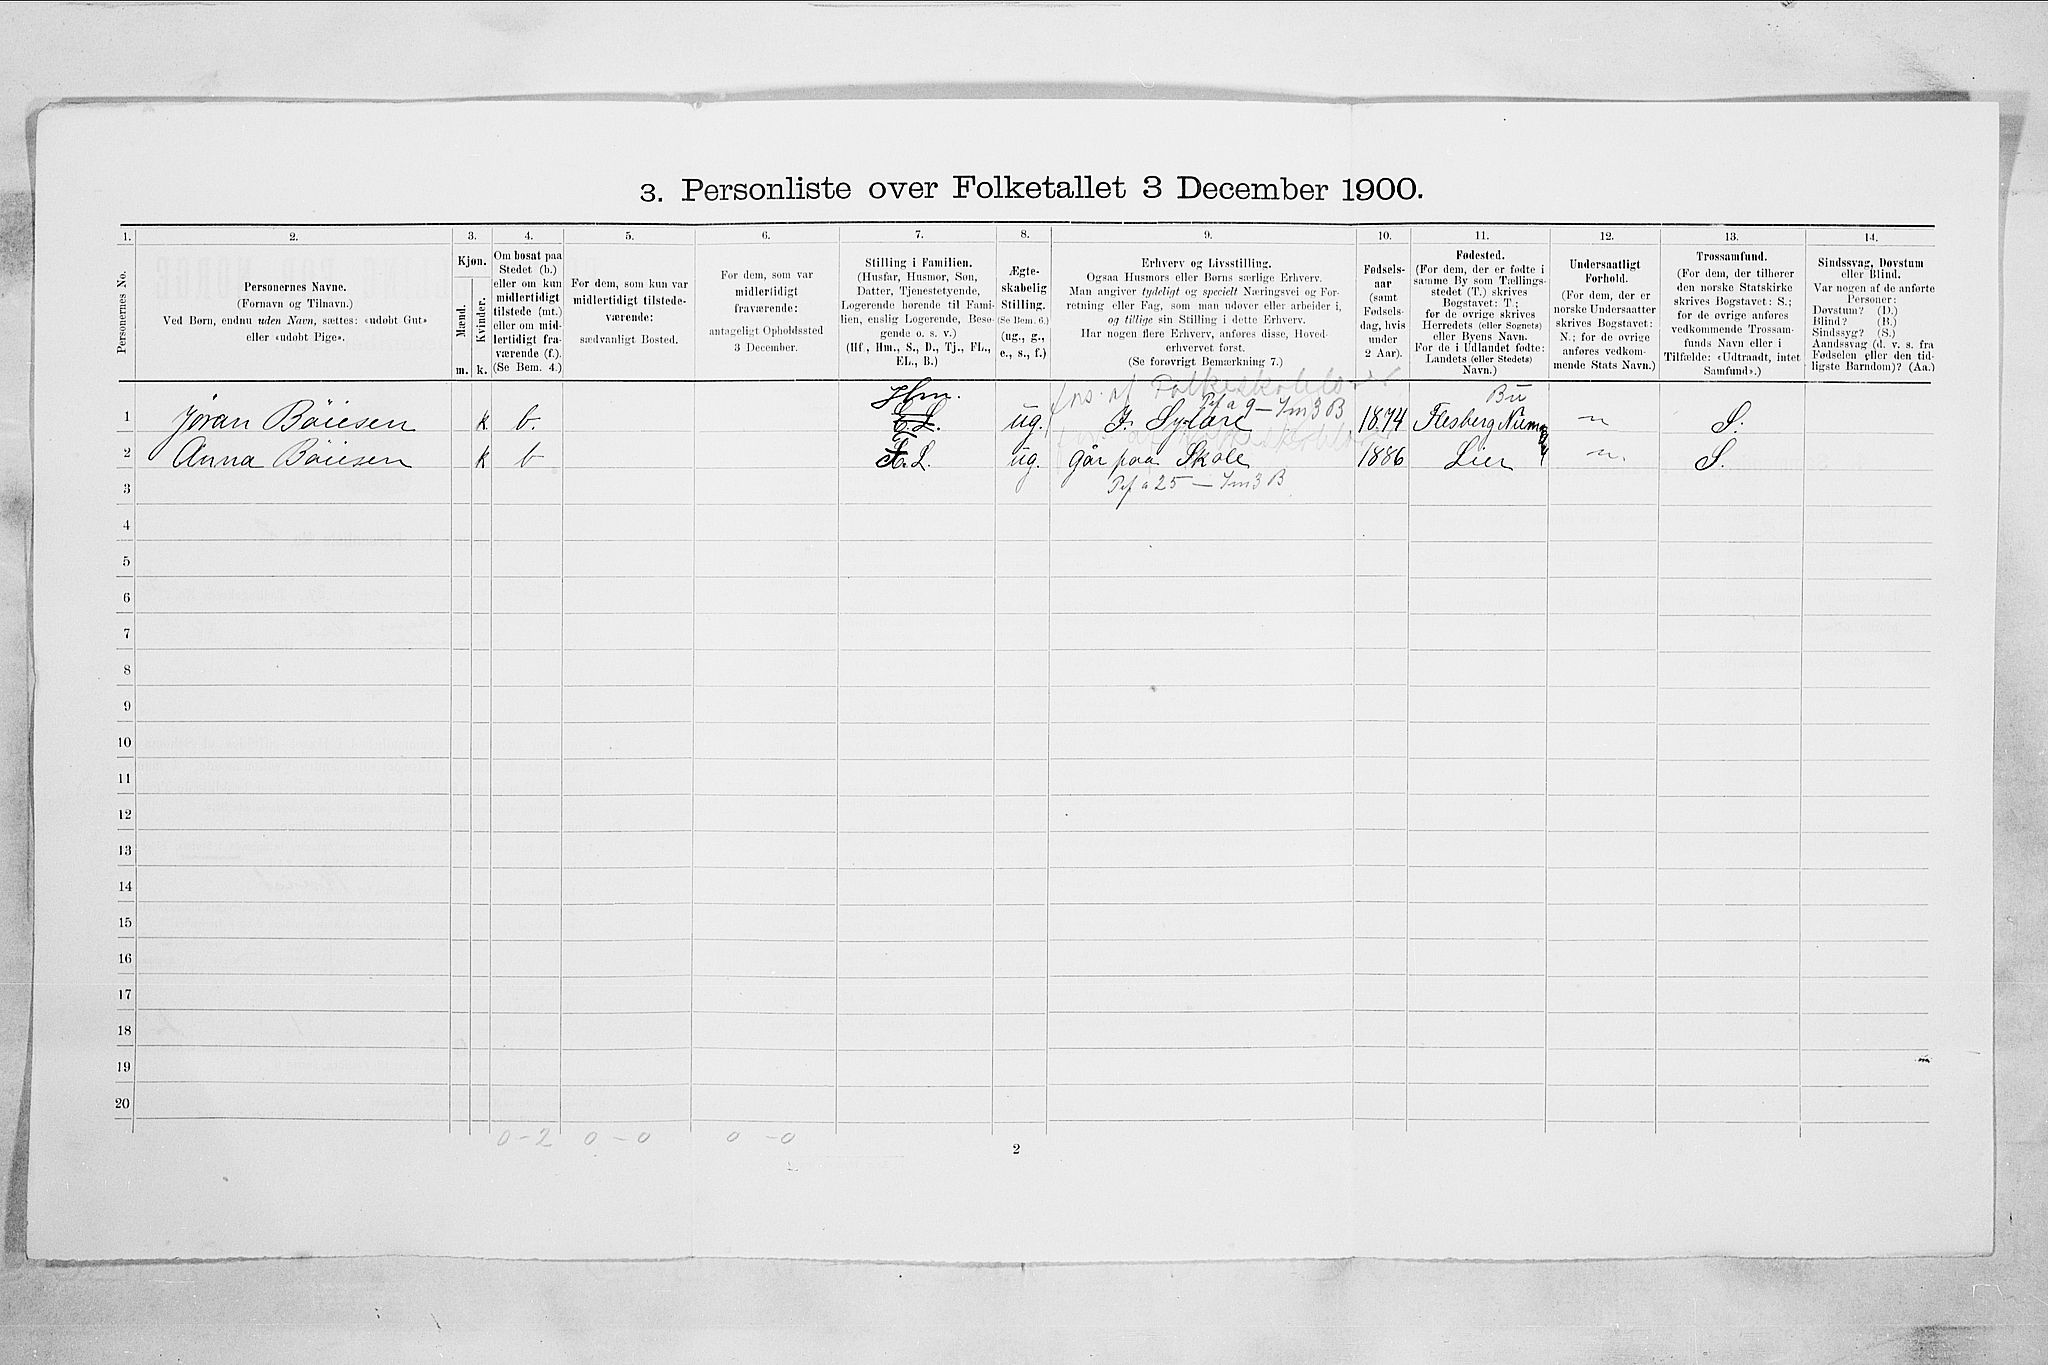 3. Personliste over Folketallet 3 December 1900.
1. 2. 3. 4. 5. 6. 7. 8. 9. 10. 11. 12. 13. 14.
Personernes No.
Personernes Navne.
(Fornavn og Tilnavn.)
Ved Børn, endnu uden Navn, sættes: «udøbt Gut»
eller «udøbt Pige».
Kjøn.
Mænd.
Kvinder.
m. k.
Om bosat paa
Stedet (b.)
eller om kun
midlertidigt
tilstede (mt.)
eller om mid-
lertidigt fra-
værende (f.).
(Se Bem. 4.)
For dem, som kun var
midlertidigt tilstede-
værende:
sædvanligt Bosted.
For dem, som var
midlertidigt
fraværende:
antageligt Opholdssted
3 December.
Stilling i Familien.
(Husfar, Husmor, Søn,
Datter, Tjenestetyende,
Logerende hørende til Fami-
lien, enslig Logerende, Besø-
gende o. s. v.)
(Hf., Hm., S., D., Tj., FL.,
EL., B.)
Ægte-
skabelig
Stilling.
(Se Bem. 6.)
(ug., g.,
e., s., f.)
Erhverv og Livsstilling.
Ogsaa Husmors eller Børns særlige Erhverv.
Man angiver tydeligt og specielt Næringsvei og For-
retning eller Fag, som man udøver eller arbeider i,
og tillige sin Stilling i dette Erhverv.
Har nogen flere Erhverv, anføres disse, Hoved-
erhvervet først.
(Se forøvrigt Bemærkning 7.)
Fødsels-
aar
(samt
Fødsels-
dag, hvis
under
2 Aar).
Fødested.
(For dem, der er fødte i
samme By som Tællings-
stedet (T.) skrives
Bogstavet: T.;
for de øvrige skrives
Herredets (eller Sognets)
eller Byens Navn.
For de i Udlandet fødte:
Landets (eller Stedets)
Navn.)
Undersaatligt
Forhold.
(For dem, der er
norske Undersaatter
skrives Bogstavet:
N.; for de øvrige
anføres vedkom-
mende Stats Navn.)
Trossamfund.
(For dem, der tilhører
den norske Statskirke
skrives Bogstavet: S.;
for de øvrige anføres
vedkommende Trossam-
funds Navn eller i
Tilfælde: «Udtraadt, intet
Samfund».)
Sindssvag, Døvstum
eller Blind.
Var nogen af de anførte
Personer:
Døvstum? (D.)
Blind? (B.)
Sindssyg? (S.)
Aandssvag (d. v. s. fra
Fødselen eller den tid-
ligste Barndom)? (Aa.)
Hm. Bu
1 Jöran Böiesen k b. ug. 1874 Flesberg n S.
2 Anna Böiesen k b F.L. ug. går paa Skole 1886 Lier n. S.
3
4
5
6
7
8
9
10
11
12
13
14
15
16
17
18
19
20
0 – 2 0 – 0 0 – 0
2